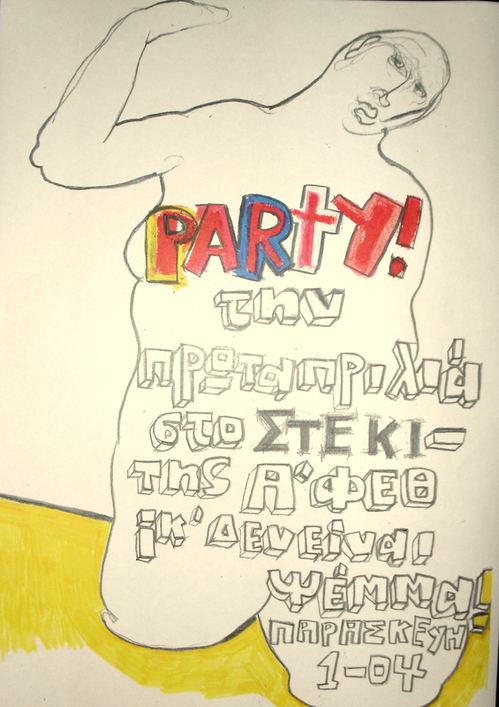 PARTY!
την
πρωταπριλιά
στο ΣΤΕΚΙ-
της Α'ΦΕΘ
ικ' δεν είναι
ψέμμα!
ΠΑΡΑΣΚΕΥΗ
1-04